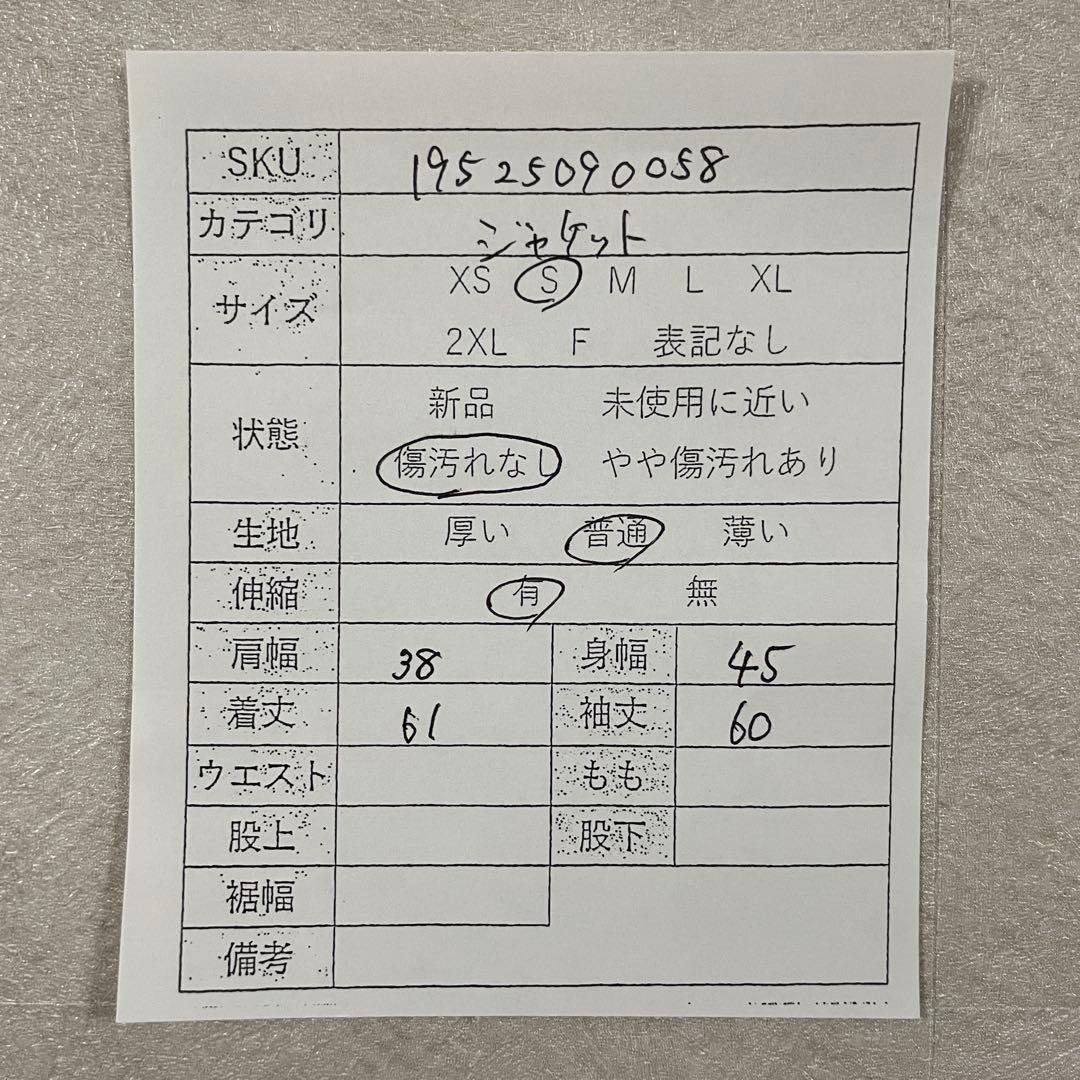 SKU 19525090058
カテゴリ ジャケット
サイズ XS S M L XL
2XL F 表記なし
状態 新品 未使用に近い
傷汚れなし やや傷汚れあり
生地 厚い 普通 薄い
伸縮 有 無
肩幅 38 身幅 45
着丈 61 袖丈 60
ウエスト もも
股上 股下
裾幅
備考